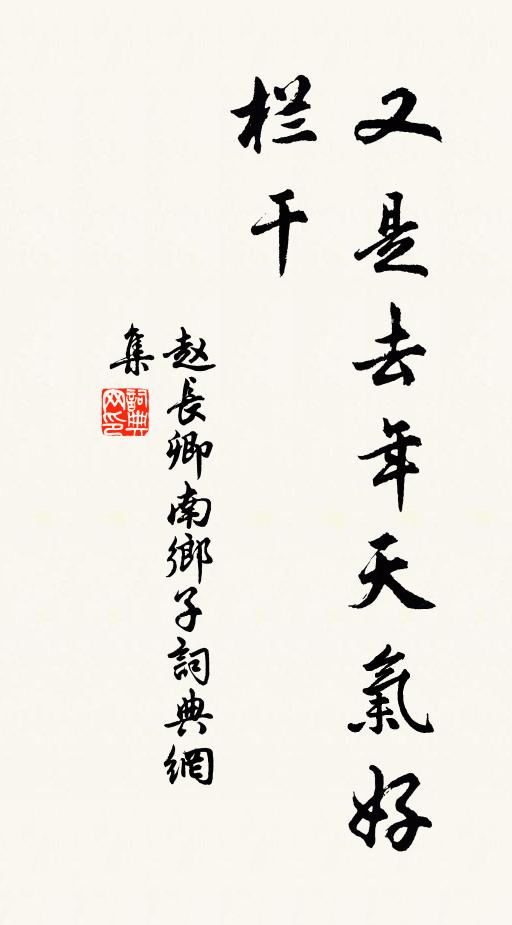 又是去年天氣好
栏干
赵長卿南鄉子詞典網
集
詞典
网印